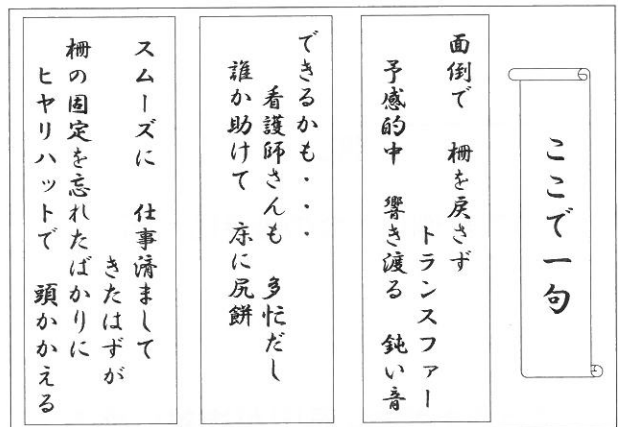 ここで一句
面倒で 柵を戻さず
トランスファー
予感的中 響き渡る 鈍い音
できるかも・・・
看護師さんも 多忙だし
誰か助けて 床に尻餅
スムーズに 仕事済まして
きたはずが
柵の固定を忘れたばかりに
ヒヤリハットで 頭かかえる